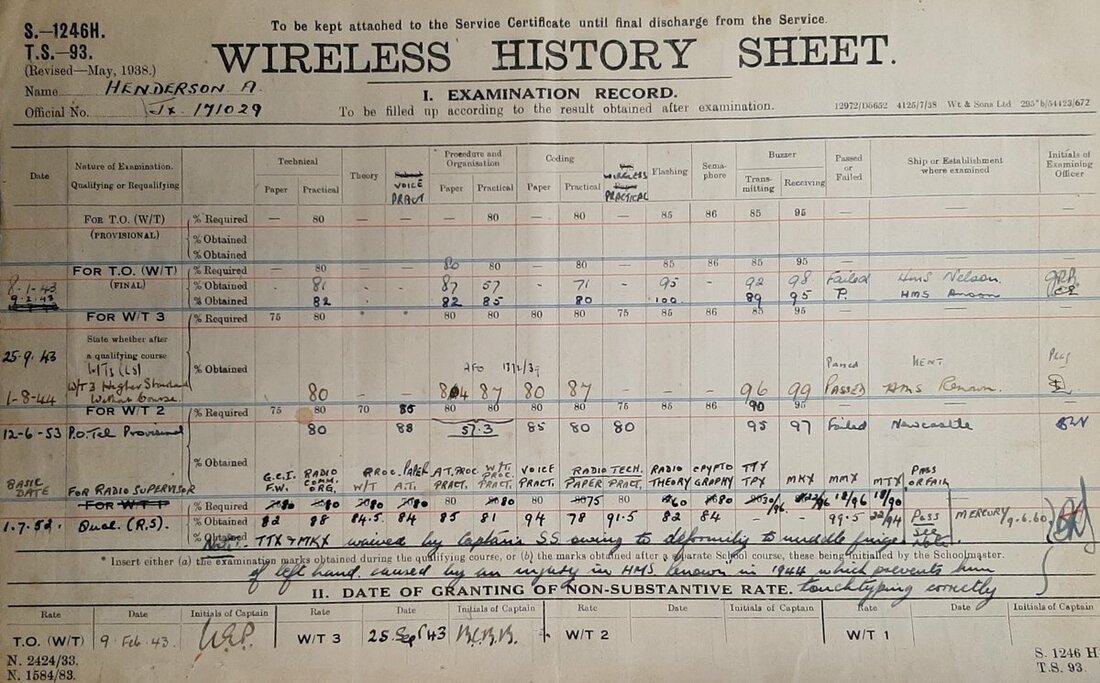 S.—1246H.
T.S.—93.
(Revised—May, 1938.)
To be kept attached to the Service Certificate until final discharge from the Service.
WIRELESS HISTORY SHEET.
Name HENDERSON A.
Official No. Jx 171029
I. EXAMINATION RECORD.
To be filled up according to the result obtained after examination.
12972/D5652 4125/7/38 Wt & Sons Ltd
Date Nature of Examination. Qualifying or Requalifying Technical Theory VOICE PRACT Procedure and Organisation Coding WIRELESS PRACTICAL Flashing Semaphore Buzzer Passed or Failed Ship or Establishment where examined Initials of Examining Officer
Paper Practical Paper Practical Paper Practical Transmitting Receiving
FOR T.O. (W/T) % Required — 80 — — — 80 — 80 — 85 86 85 95 — —
(PROVISIONAL) % Obtained
% Obtained
FOR T.O. (W/T) % Required — 80 — — 80 80 — 80 — 85 86 85 95 — —
8-1-43 (FINAL) % Obtained - 81 - - 87 57 - 71 - 95 - 92 98 Failed HMS Nelson
9.2.43 % Obtained 82 82 85 80 100 89 95 P. HMS Anson
FOR W/T 3 % Required 75 80 80 80 80 80 75 85 86 85 95 — —
State whether after
25.9.43 a qualifying course Passed
% Obtained AFO
1-8-44 W/T 3 Higher Standard Without Course. 80 — — 84 87 80 87 — — — 96 99 PASSED HMS Renown.
FOR W/T 2 % Required 75 80 70 85 80 80 80 80 75 85 86 90 95 — —
12-6-53 P.O. Tel Provisional 80 88 57.3 85 80 80 95 97 Failed Newcastle
% Obtained
G.C.I. F.W. RADIO COMM. ORG. PROC. W/T PAPER A.T. A.T. PROC. PRACT. W/T PROC. PRACT. VOICE PRACT. RADIO TECH. PAPER PRACT. RADIO THEORY CRYPTOGRAPHY TTX TPX MKX MMX MTX PASS OR FAIL
BASIC DATE FOR RADIO SUPERVISOR
FOR W/T 1 % Required 80 80 80 80 80 80 80 75 80 60 80 18/96 18/90
1.7.52. Qual. (R.S). % Obtained 82 88 84.5 84 85 81 94 78 91.5 82 84 — — 99.5 22/94 Pass see Note. MERCURY/9.6.60
% Obtained
Note: TTX & MKX waived by Captain's SS owing to deformity to middle finger
* Insert either (a) the examination marks obtained during the qualifying course, or (b) the marks obtained after a separate School course, these being initialled by the Schoolmaster.
of left hand caused by an injury in HMS Renown in 1944 which prevents him
II. DATE OF GRANTING OF NON-SUBSTANTIVE RATE. touchtyping correctly
Rate Date Initials of Captain Rate Date Initials of Captain Rate Date Initials of Captain Rate Date Initials of Captain
T.O. (W/T) 9 Feb. 43. W/T 3 25 Sept 43 W/T 2 W/T 1
N. 2424/33.
N. 1584/83.
S. 1246 H
T.S. 93.